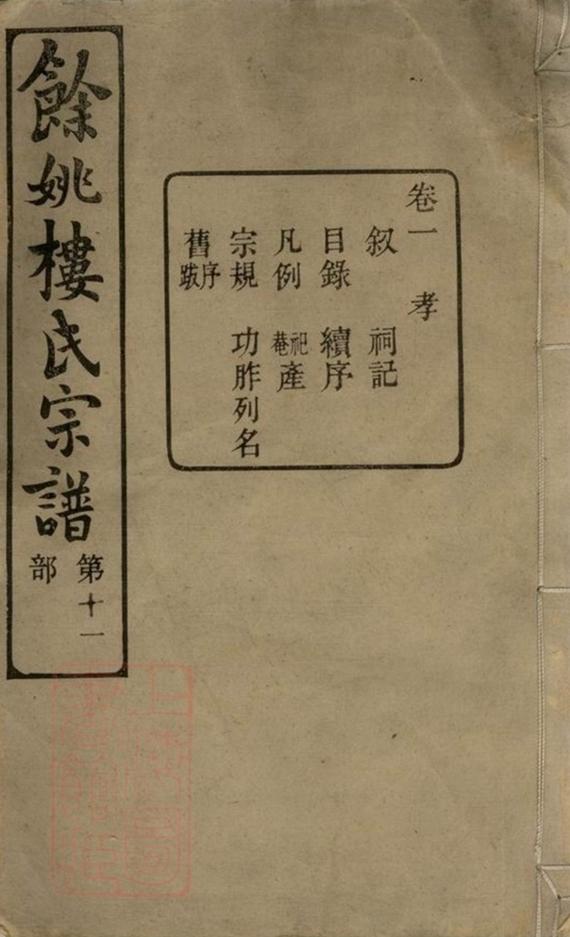 餘姚樓氏宗譜
第十一部
卷一 孝
叙 祠記
目錄 續序
凡例 祀菴產
宗規 功胙列名
舊序跋